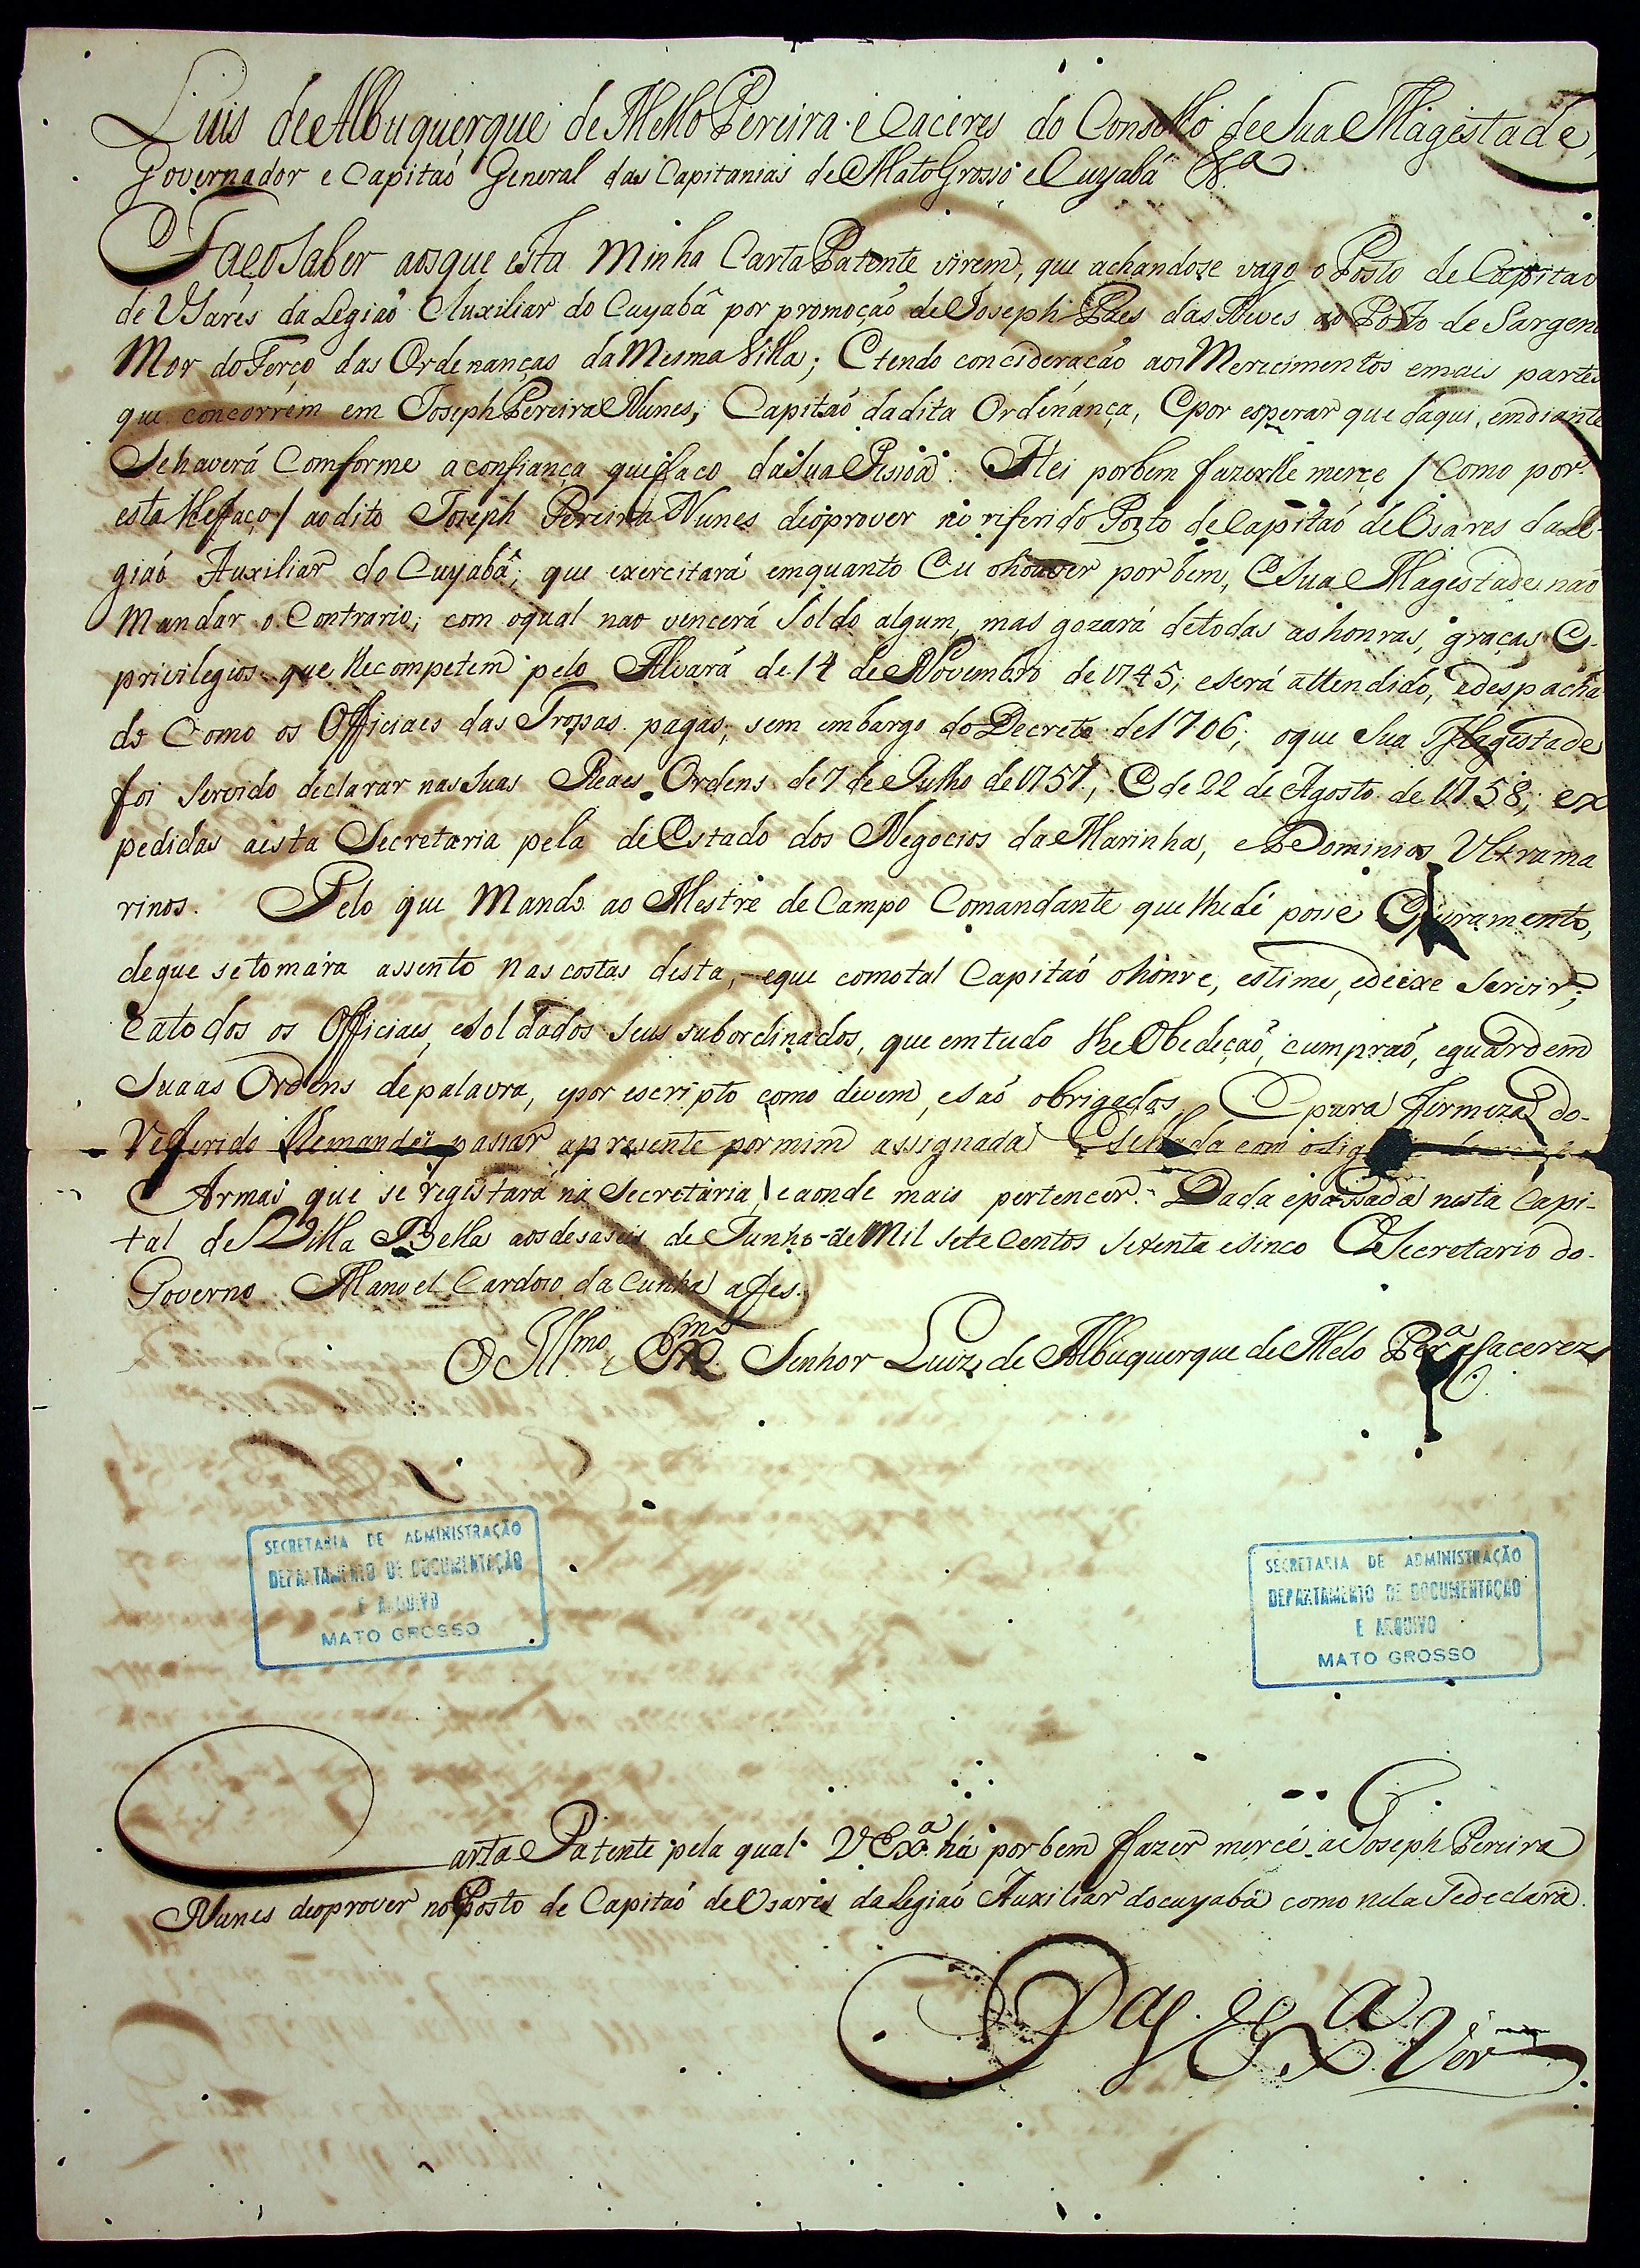 Luis de Albuquerque de Mello Pereira e Caceres do Conselho de Sua Magestade,
Governador e Capitaõ General das Capitanias de Mato Grosso e Cuyabá &.ª
Faço saber aos que esta Minha Carta Patente virem, que achandose vago o Posto de Capitaõ
de Usáres da Legiaõ Auxiliar do Cuyabâ por promoçaõ de Joseph Paes das Neves ao Posto de Sargen
Mor do Terço das Ordenanças da Mesma Villa; E tendo concideracaõ aos Merecimentos e mais partes
que concorrem em Joseph Pereira Nunes, Capitaõ da dita Ordenânça, E por esperar que daqui em diante
Se haverá Comforme a confiança que faço da Sua Pesoâ: Hei por bem fazerlhe merce / Como por
esta lhe faço / ao dito Joseph Pereira Nunes de o prover no referido Posto de Capitaõ de Usares da Le-
giaõ Auxiliar do Cuyabâ; que exercitará emquanto Eu o houver por bem, E Sua Magestade naõ
Mandar o Contrario; com o qual nao vencerá Soldo algum, mas gozará de todas as honras, graças E
privilegios que lhe competem pelo Alvará de 14 de Novembro de 1745; e será attendido, e despacha
do Como os Officiaes das Tropas pagas; sem embargo do Decreto de 1706; o que Sua Magestade
foi Servido declarar nas Suas Reaes Ordens de 7 de Julho de 1757, E de 22 de Agosto de 1758; ex
pedidas a esta Secretaria pela de Estado dos Negocios da Marinha, e Dominios Ultrama
rinos. Pelo que Mando ao Mestre de Campo Comandante que lhe dê posse E juramento,
de que se tomára assento nas costas desta, e que como tal Capitaõ o honre, estime, e deixe Servir;
E a todos os Officiaes, e Soldados Seus subordinados, que em tudo lhe Obedeçaõ, cumpraõ, e guardem
Suaas Ordens de palavra, e por escripto como devem, e saõ obrigados E para firmeza do-
Referido lhe mandei passar a presente por mim assignada E Sellada com o
Armas que se registará na Secretária, e aonde mais pertencer. Dada e passada nesta Capi-
tal de Villa Bella aos desaseis de Junho de Mil Sete Centos Setenta e Sinco O Secretario do-
Governo Manoel Cardoso da Cunha a fes.
O Ill.mo e Ex.mo Senhor Luiz de Albuquerque de Melo Per.ª e Cacerez
SECRETARIA DE ADMINISTRAÇÃO
DEPARTAMENTO DE DOCUMENTAÇÃO
E ARQUIVO
MATO GROSSO
SECRETARIA DE ADMINISTRAÇÃO
DEPARTAMENTO DE DOCUMENTAÇÃO
E ARQUIVO
MATO GROSSO
Carta Patente pela qual V Ex.ª há por bem fazer mercé a Joseph Pereira
Nunes de o prover no Posto de Capitaõ de Usares da Legiaõ Auxiliar do Cuyabâ como nela Se declara.
P.ª V. Ex.ª Ver